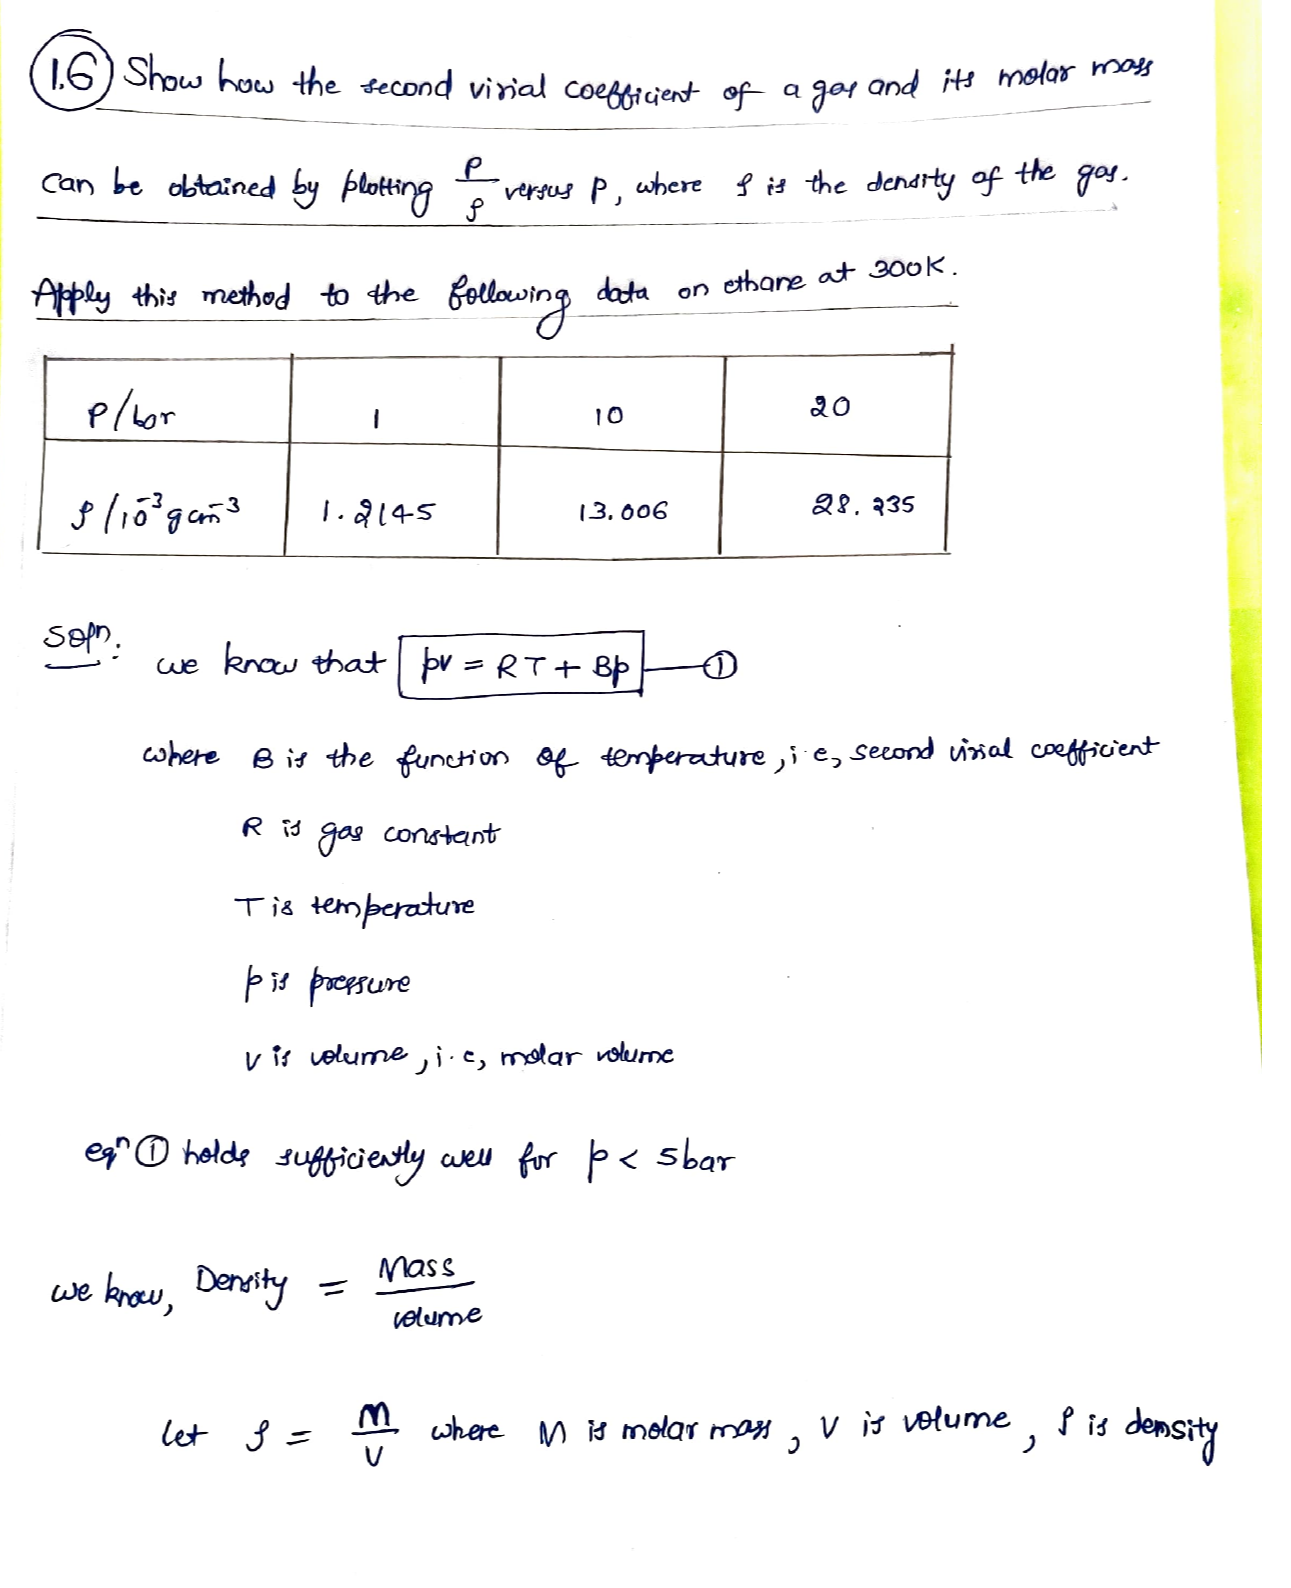 1.6 Show how the second virial coefficient of a gas and its molar mass
can be obtained by plotting P/ρ versus P, where ρ is the density of the gas.
Apply this method to the following data on ethane at 300K.
P/bar 1 10 20
ρ/10⁻³ g cm⁻³ 1.2145 13.006 28.235
Soln:
we know that pv = RT + Bp ①
where B is the function of temperature, i.e, second virial coefficient
R is gas constant
T is temperature
p is pressure
v is volume, i.e, molar volume
eqⁿ ① holds sufficiently well for p < 5bar
we know, Density = Mass/volume
let ρ = M/V where M is molar mass, V is volume, ρ is density